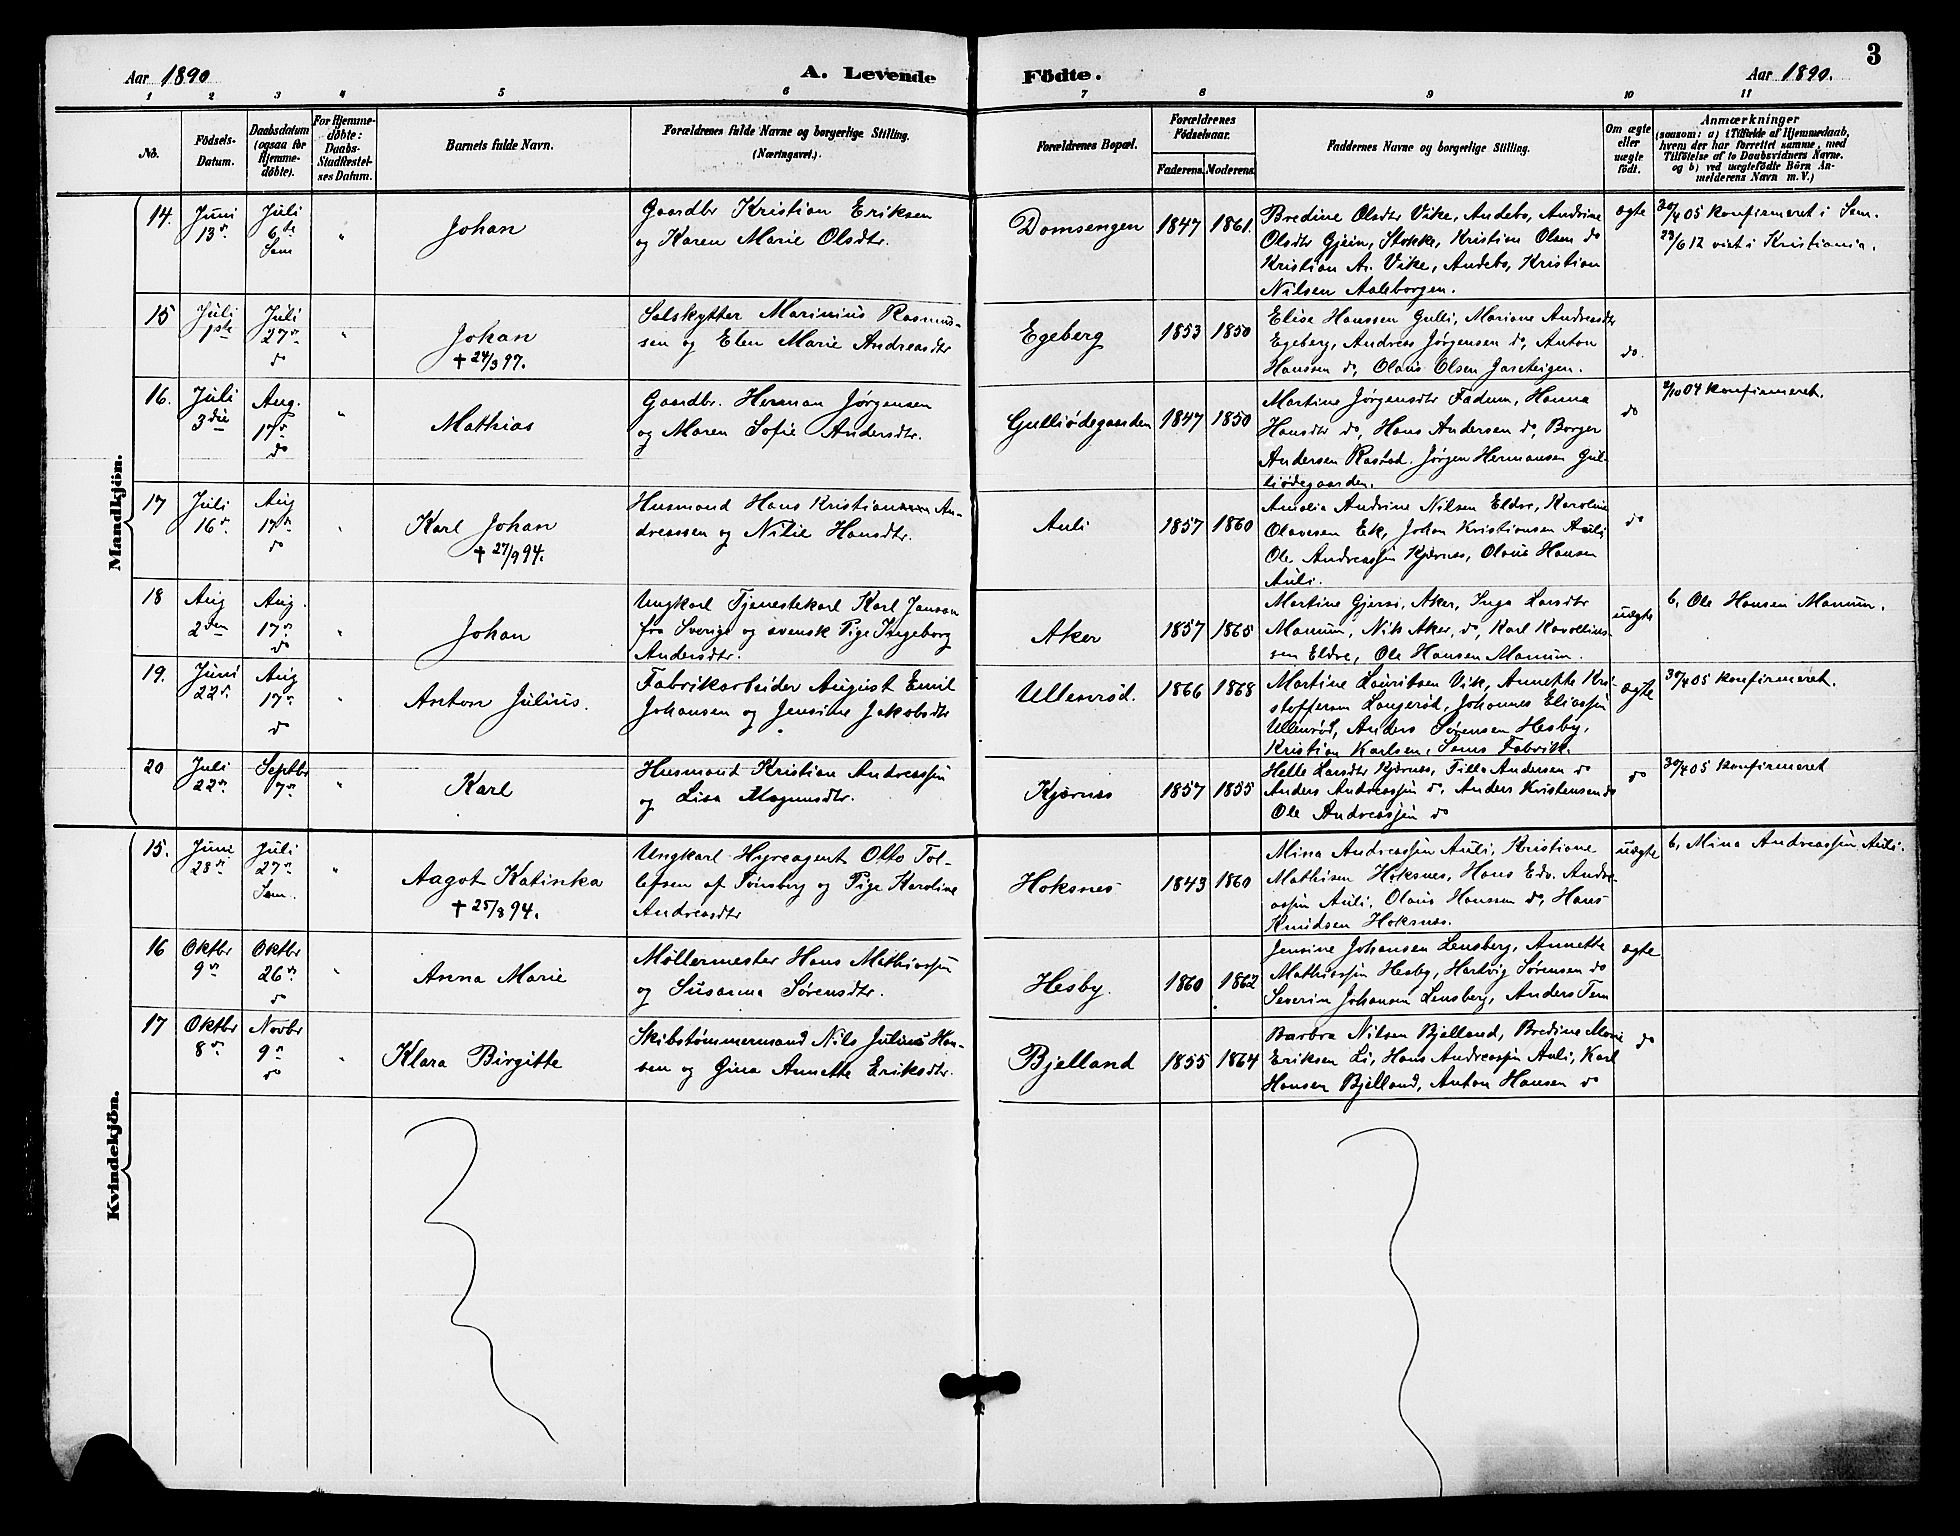 3
Aar 1890
A. Levende Födte.
Aar 1890.
1 2 3 4 5 6 7 8 9 10 11
No.
Födsels-Datum.
Daabsdatum (ogsaa for Hjemme-döbte).
For Hjemme-döbte: Daabs-Stadfæstel-ses Datum.
Barnets fulde Navn.
Forældrenes fulde Navne og borgerlige Stilling.
(Næringsvei.)
Forældrenes Bopæl.
Forældrenes Födselsaar.
Faderens. Moderens.
Faddernes Navne og borgerlige Stilling.
Om ægte eller uægte födt.
Anmærkninger
(saasom: a) i Tilfælde af Hjemmedaab,
hvem der har forrettet samme, med
Tilföielse af to Daabsvidners Navne.
og b) ved uægtefödte Börn An-
melderens Navn m. V.)
Mandkjön.
14. Juni 13de Juli 6te Sem " Johan
Gaardbr Kristian Eriksen
og Karen Marie Olsdtr.
Domsengen 1847 1861.
Bredine Olsdtr Vike, Andebo, Andrine
Olsdtr Gjein, Stokke, Kristian Olsen do
Kristian A. Vike, Andebo, Kristian
Nilsen Aalsborgen.
ægte
30/4 05 konfirmeret i Sem.
23/6 12 viet i Kristiania.
15 Juli 1ste Juli 27de do " Johan
+ 24/3 97.
Selskytter Marinius Rasmus-
sen og Elen Marie Andreasdtr
Egeberg 1853 1850
Elise Hanssen Gulli, Mariane Andreasdtr
Egeberg, Andreas Jørgensen do, Anton
Hanssen do, Olaus Olsen Jarsteigen.
do.
16. Juli 3die Aug. 17de do " Mathias
Gaardbr. Herman Jørgensen
og Maren Sofie Andersdtr.
Gulliødegaarden 1847 1850
Martine Jørgensdtr Fadum, Hanna
Hansdtr do, Hans Andersen do, Borger
Andersen Rastad. Jørgen Hermansen Gul-
liødegaarden.
do
2/10 04 konfirmeret.
17 Juli 16de Aug 17de do " Karl Johan
+ 27/9 94.
Husmand Hans Kristian An-
dreassen og Nilie Hansdtr.
Auli 1857 1860
Amalia Andrine Nilsen Eldre, Karoline
Olavesen Ek, Johan Kristiansen Auli
Ole Andreassen Kjærnes, Olaus Hansen
Auli.
do
18 Aug 2den Aug. 17de do " Johan
Ungkarl Tjenestekarl Karl Janson
fra Sverige og svensk Pige Ingeborg
Andersdtr.
Aker 1857 1865
Martine Gjersø, Aker, Inga Larsdtr
Manum, Nils Aker, do, Karl Karolius-
sen Eldre, Ole Hansen Manum.
uægte
b, Ole Hansen Manum.
19. Juni 22de Aug 17de do " Anton Julius.
Fabrikarbeider August Emil
Johansen og Jensine Jakobsdtr
Ullenrød. 1866 1868
Martine Lauritsen Vik, Annette Kri-
stoffersen Langerød, Johannes Eliassen
Ullenrød, Anders Sørensen Hesby,
Kristian Karlsen, Sems Fabrik.
ægte
30/4 05 konfirmeret.
20 Juli 22de Septbr 7de " Karl
Husmand Kristian Andreassen
og Lisa Magnusdtr.
Kjærnes 1857 1855
Helle Larsdtr Kjærnes, Tilla Andersen do
Anders Andreassen do, Anders Kristensen do
Ole Andreassen do
do
30/4 05 konfirmeret
Kvindekjön.
15. Juni 28de Juli 27de Sem. " Aagot Katinka
+ 25/8 94.
Ungkarl Hyreagent Otto Tol-
lefsen af Tønsberg og Pige Karoline
Andreasdtr
Hoksnes 1843 1860
Mina Andreassen Auli, Kristiane
Mathisen Hoksnes, Hans Edv. Andre-
assen Auli, Olaus Hanssen do, Hans
Knudsen Hoksnes.
uægte
b, Mina Andreassen, Auli.
16 Oktbr 9de Oktbr 26de do " Anna Marie
Møllermester Hans Mathiassen
og Susanna Sørensdtr.
Hesby. 1860 1862
Jensine Johansen Lensberg, Annette
Mathiassen Hesby, Hartvig Sørensen do
Severin Johansen Lensberg, Anders Tem
ægte
17 Oktbr 8de Novbr 9de do " Klara Birgitte
Skibstømmermand Nils Julius Han-
sen og Gina Annette Eriksdtr.
Bjelland 1855 1864
Barbra Nilsen Bjelland, Bredine Marie
Eriksen Li, Hans Andreassen Auli, Karl
Hansen Bjelland, Anton Hansen do
do